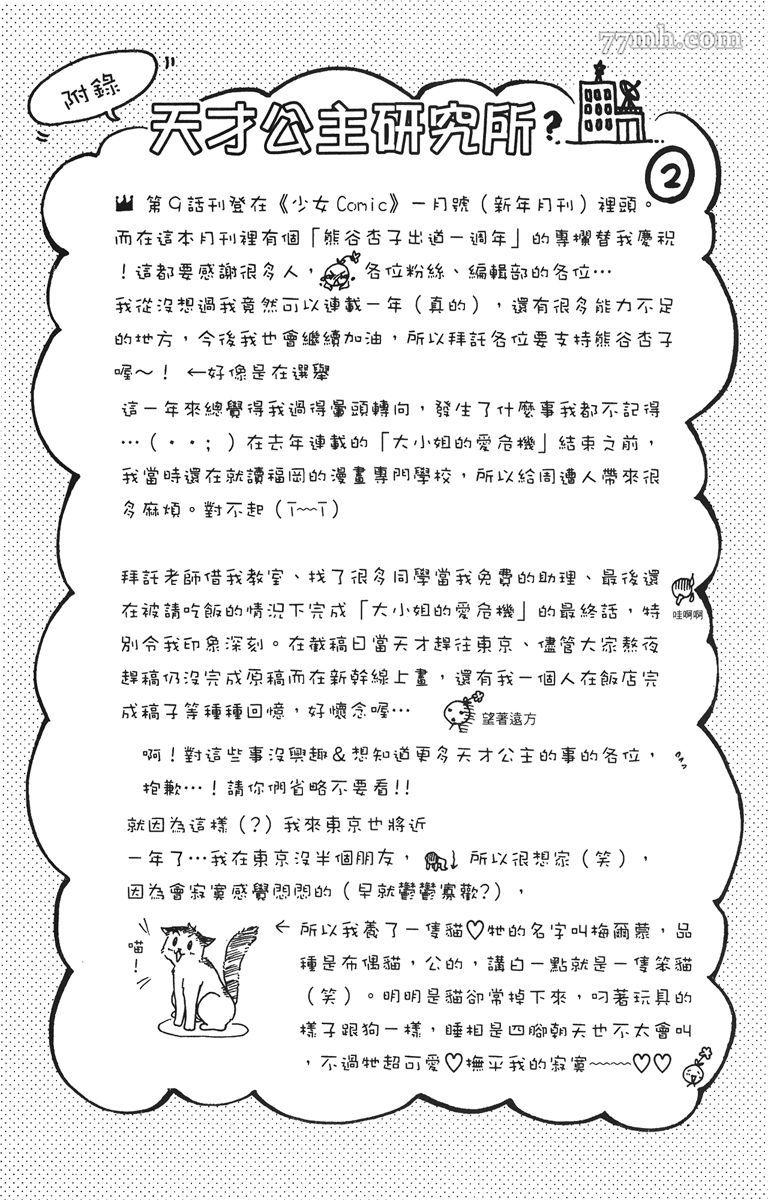 77mh.com
附錄
天才公主研究所?
2
第9話刊登在《少女Comic》一月號（新年月刊）裡頭。
而在這本月刊裡有個「熊谷杏子出道一週年」的專攔替我慶祝
！這都要感謝很多人，各位粉絲、編輯部的各位…
我從沒想過我竟然可以連載一年（真的），還有很多能力不足
的地方，今後我也會繼續加油，所以拜託各位要支持熊谷杏子
喔～！ ←好像是在選舉
這一年來總覺得我過得暈頭轉向，發生了什麼事我都不記得
…（・・；）在去年連載的「大小姐的愛危機」結束之前，
我當時還在就讀福岡的漫畫專門學校，所以給周遭人帶來很
多麻煩。對不起（T~~T）
拜託老師借我教室、找了很多同學當我免費的助理、最後還
在被請吃飯的情況下完成「大小姐的愛危機」的最終話，特
哇啊啊
別令我印象深刻。在截稿日當天才趕往東京、儘管大家熬夜
趕稿仍沒完成原稿而在新幹線上畫，還有我一個人在飯店完
成稿子等種種回憶，好懷念喔…
望著遠方
啊！對這些事沒興趣＆想知道更多天才公主的事的各位，
抱歉…！請你們省略不要看!!
就因為這樣（？）我來東京也將近
一年了…我在東京沒半個朋友，↓所以很想家（笑），
因為會寂寞感覺悶悶的（早就鬱鬱寡歡?），
喵！
← 所以我養了一隻貓♡牠的名字叫梅爾蒙，品
種是布偶貓，公的，講白一點就是一隻笨貓
（笑）。明明是貓卻常掉下來，叼著玩具的
樣子跟狗一樣，睡相是四腳朝天也不太會叫
，不過牠超可愛♡撫平我的寂寞~~~~♡♡